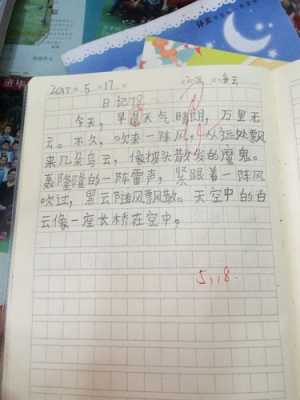 2017.5.17.
日记
今天,早晨天气晴朗,万里无
云。不久,吹来一阵风,从远处飘
来几朵乌云,像披头散发的魔鬼。
轰隆隆的一阵雷声,紧跟着一阵风
吹过,黑云随风飘散。天空中的白
云像一座长桥在空中。
5,18.